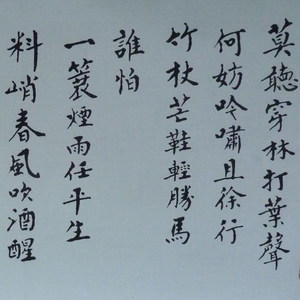 莫聽穿林打葉聲
何妨吟嘯且徐行
竹杖芒鞋輕勝馬
誰怕
一蓑煙雨任平生
料峭春風吹酒醒